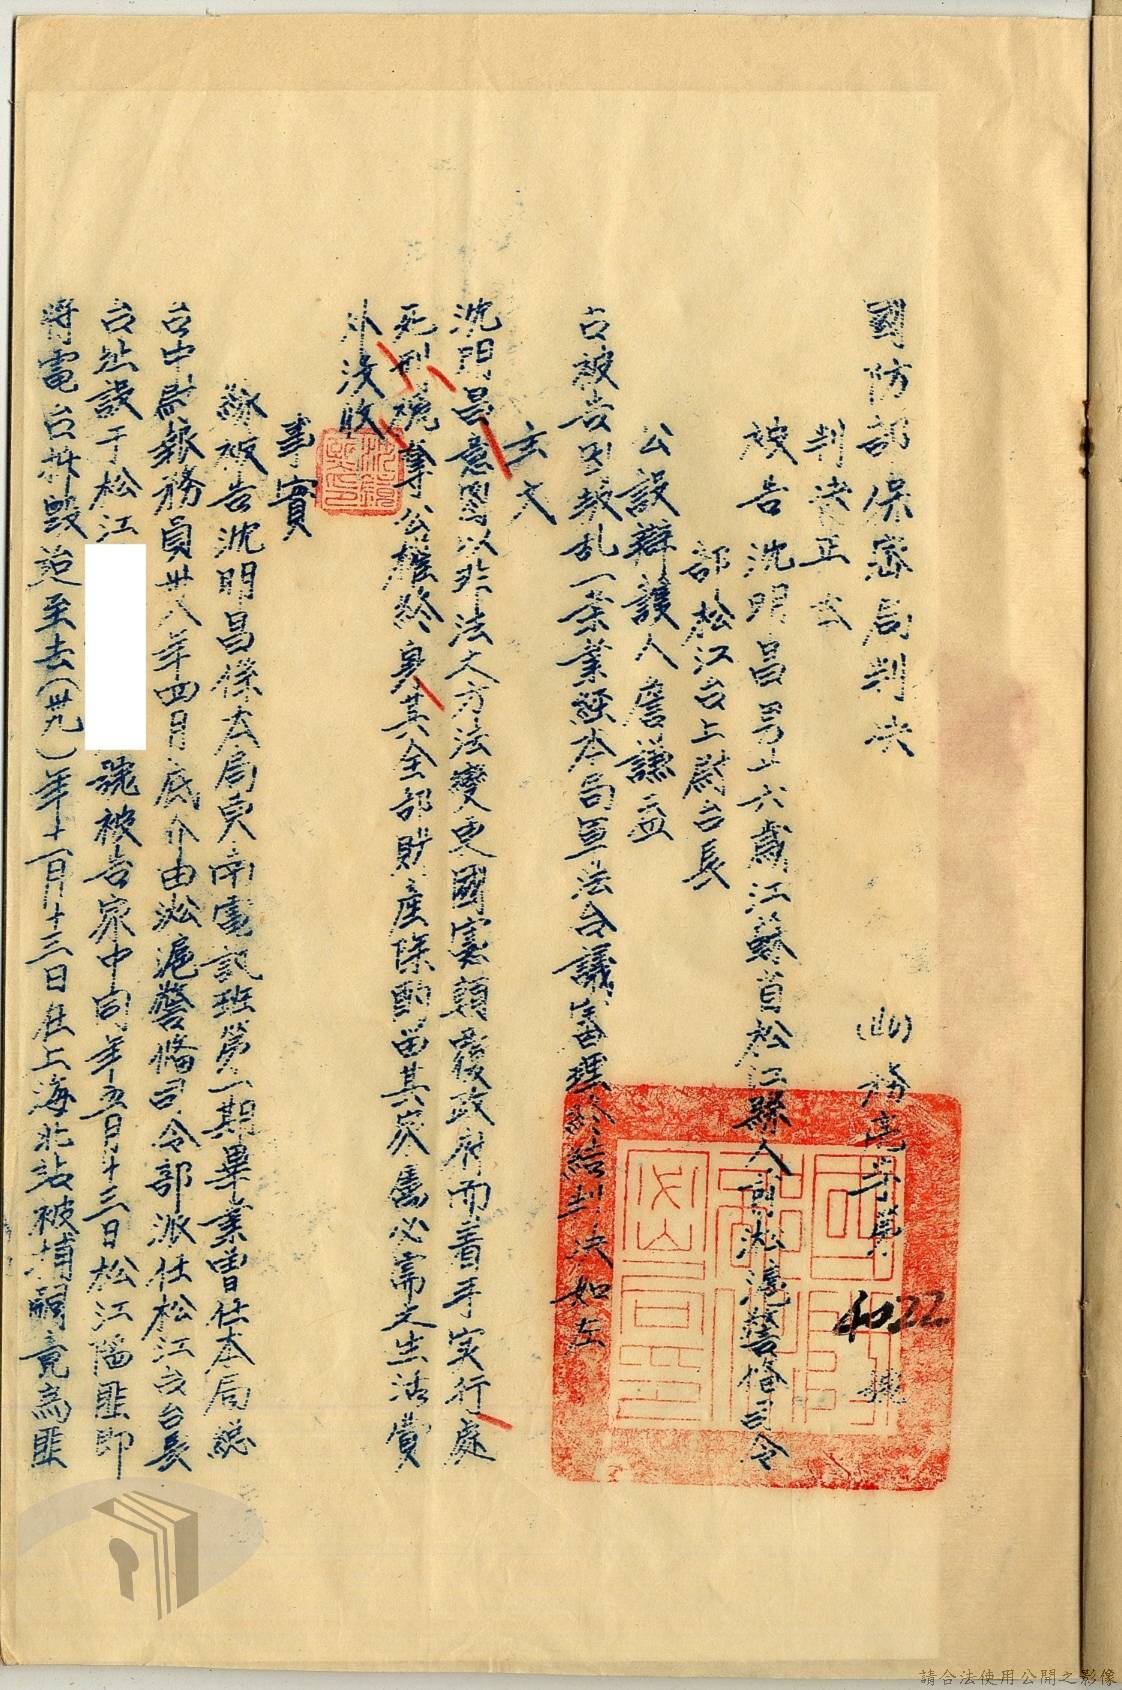 國防部保密局判決　(山)務亮字第4022號
判決正本
被告沈明昌男廿六歲江蘇省松江縣人前淞滬警備司令
部松江台上尉台長
公設辯護人詹謙益
右被告因叛乱一案業經本局軍法合議審理終結判決如左
主文
沈明昌意圖以非法之方法變更國憲顛覆政府而着手实行處
死刑褫奪公權終身其全部財產除酌留其家屬必需之生活費
外沒收
事實
緣被告沈明昌係本局東南電訊班第一期畢業曾任本局總
台中尉報務員卅八年四月底介由淞滬警備司令部派任松江支台長
台址設于松江
號被告家中同年五月十三日松江陷匪即
將電台拆毀迨至去(卅九)年十一月十三日在上海北站被捕嗣竟為匪
請合法使用公開之影像